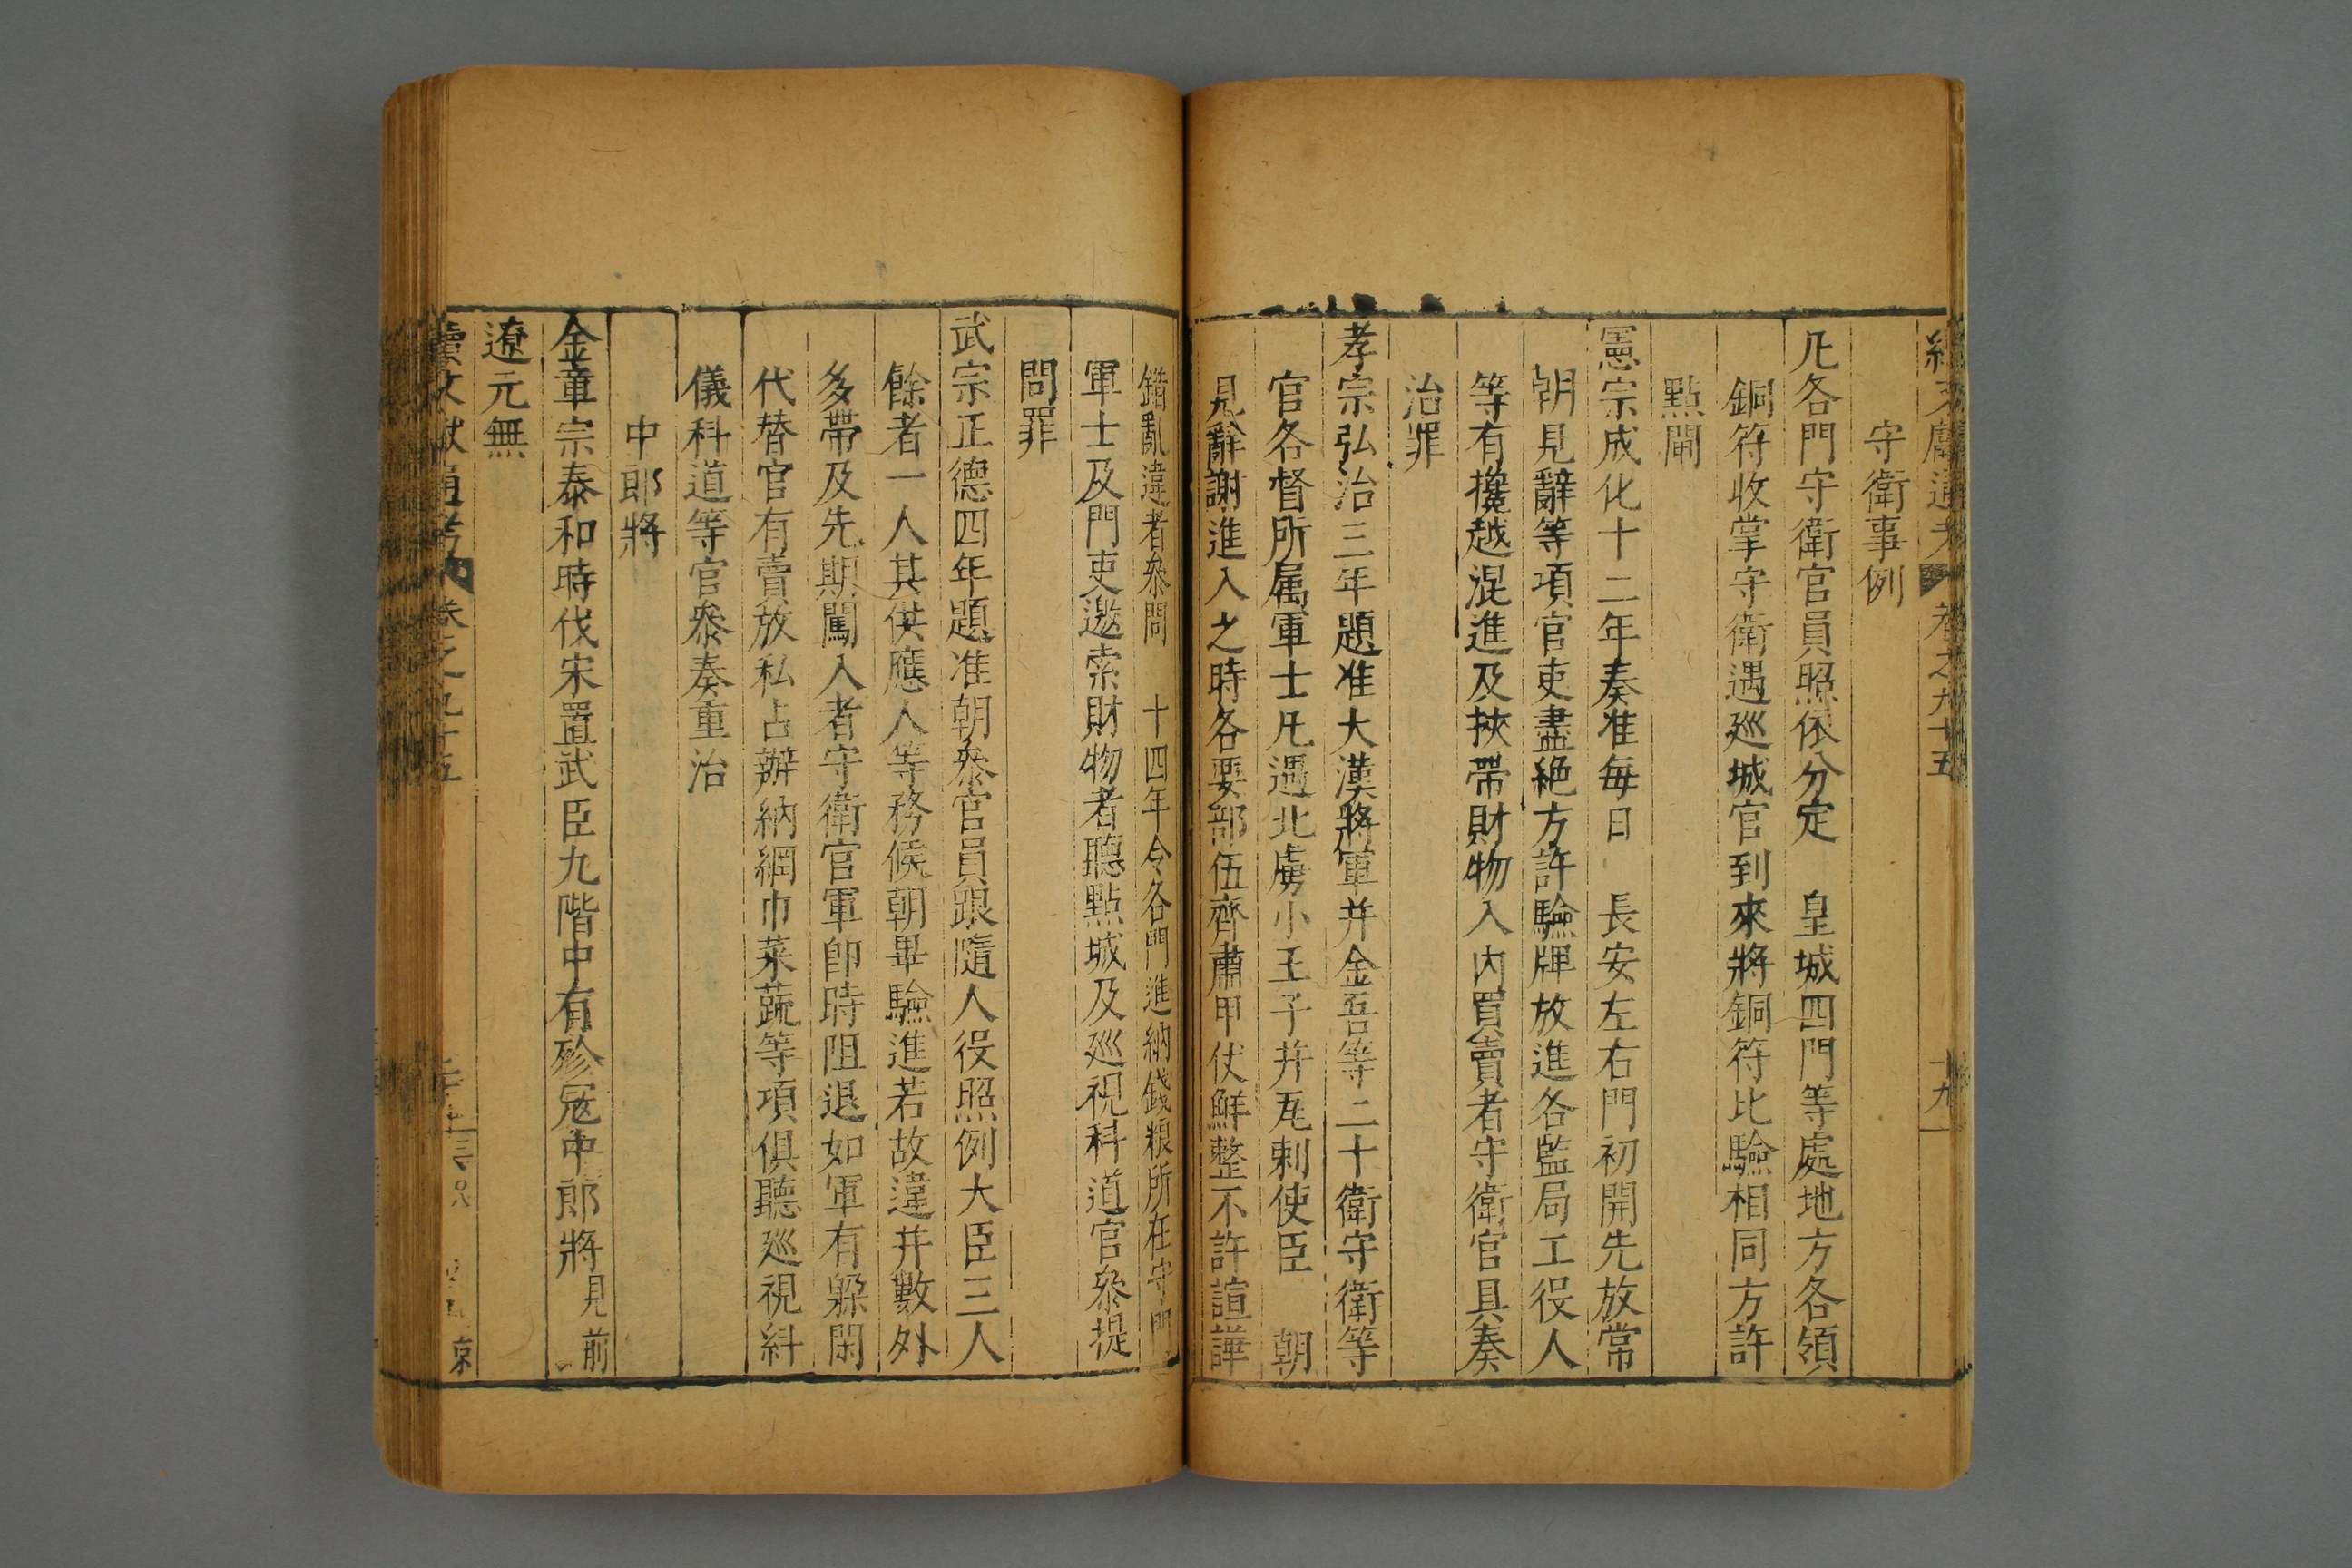 續文獻通考 卷之九十五 十九
守衛事例
凡各門守衛官員照依分定 皇城四門等處地方各領
銅符收掌守衛遇廵城官到來將銅符比驗相同方許
點閘
憲宗成化十二年奏准每日 長安左右門初開先放常
朝見辭等項官吏盡絶方許驗牌放進各監局工役人
等有攙越混進及挾帶財物入内買賣者守衛官具奏
治罪
孝宗弘治三年題准大漢將軍并金吾等二十衛守衛等
官各督所属軍士凡遇北虜小王子并瓦剌使臣 朝
見辭謝進入之時各要部伍齊肅甲仗鮮整不許諠譁
錯亂違者叅問 十四年令各門進納錢粮所在守門
軍士及門吏邀索財物者聽點城及廵視科道官叅提
問罪
武宗正德四年題准朝叅官員跟隨人役照例大臣三人
餘者一人其供應人等務候朝畢驗進若故違并數外
多帶及先期闖入者守衛官軍即時阻退如軍有躲閑
代替官有賣放私占辦納網巾菜蔬等項俱聽廵視糾
儀科道等官叅奏重治
中郎將
金章宗泰和時伐宋置武臣九階中有殄冦中郎將見前
遼元無
續文獻通考 卷之九十五